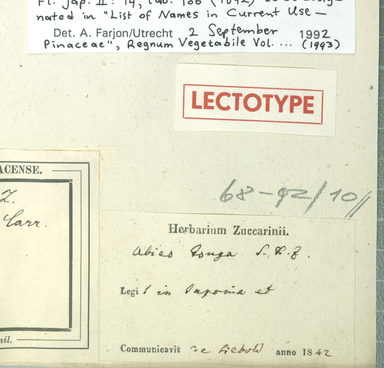 Fl. Jap. II: 14, tab. 106 (1842) to be desig-
nated in "List of Names in Current Use —
Det. A. Farjon/Utrecht 2 September 1992
Pinaceae", Regnum Vegetabile Vol. ... (1993)
LECTOTYPE
ACENSE.
Z.
Carr.
nil.
68-92/10
Herbarium Zuccarinii.
Abies Tsuga S. & Z.
Legit in Japonia et
Communicavit de Siebold anno 1842